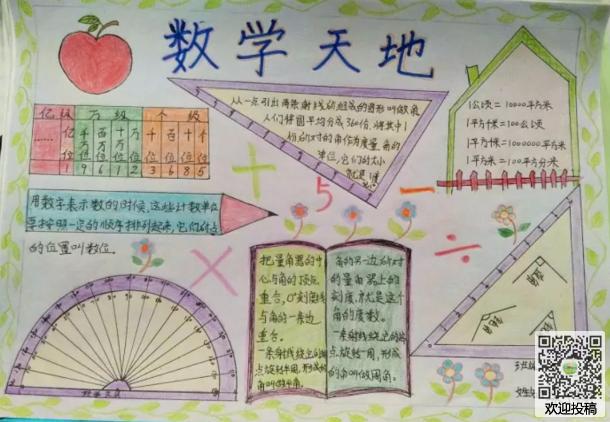 数学天地
从一点引出两条射线所组成的图形叫做角
人们将圆平均分成360份,将其中1
份所对的角作为度量角的
单位,它的大小
就是1度
1公顷=10000平方米
1平方千米=100公顷
1平方千米=1000000平方米
1平方米=100平方分米
亿级 万级 个级
…… 亿位 千万位 百万位 十万位 万位 千位 百位 十位 个位
1 9 6 1 2 3 6 8 5
用数字表示数的时候,这些计数单位
要按照一定的顺序排列起来,它们所占
的位置叫数位。
+ 5 - × ÷
把量角器的中
心与角的顶点
重合,0°刻度线
与角的一条边
重合。
一条射线绕它的端
点旋转半周,形成的
角叫做平角。
角的另一边所对
的量角器上的
刻度,就是这个
角的度数。
一条射线绕它的端
点旋转一周,形成
的角叫做周角。
班级
姓名
欢迎投稿